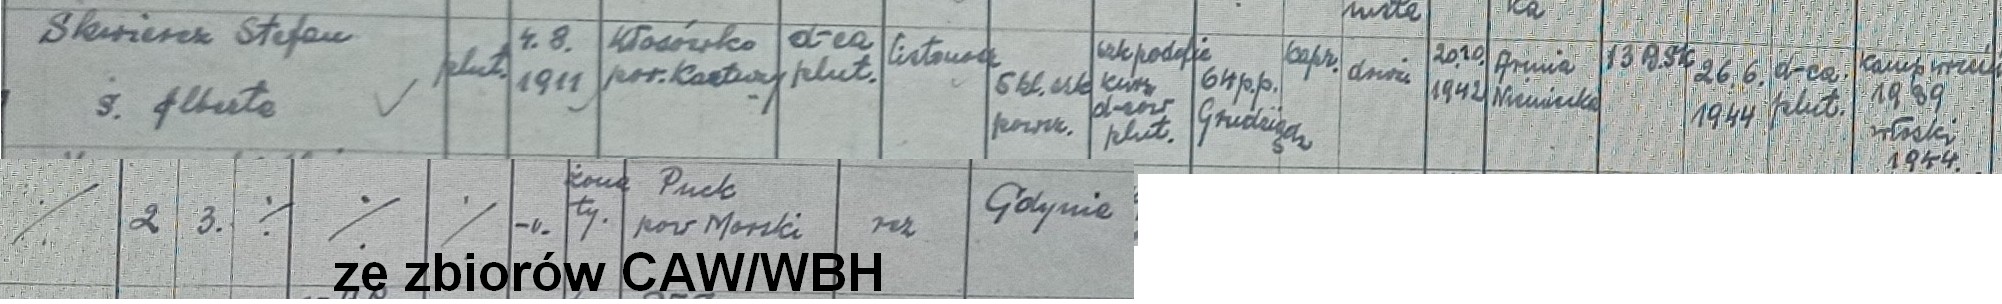 miste ka
Skwiercz Stefan
s. Alberta
plut.
4. 8.
1911
Kłosówko
pow. Kartuzy
d-ca
plut.
listonosz
5 kl. szk
powsz.
szk podofic
kurs
d-ców
plut.
64 p.p.
Grudziądz
kapr.
dziś
20.10.
1942
Armia
Niemiecka
13 B.Sk
26. 6.
1944
d-ca.
plut.
Kamp wrześn
1939
włoski
1944.
2 3. -v.
żona
ty.
Puck
pow Morski
rez
Gdynia
ze zbiorów CAW/WBH